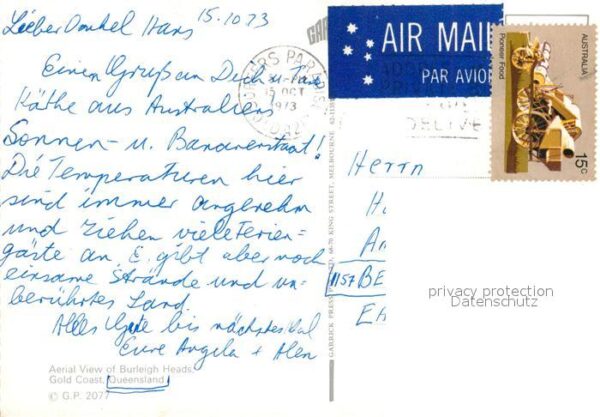 Lieber Onkel Hans 15.10.73
Einen Gruß an Dich u. Tante
Käthe aus Australiens
Sonnen- u. Bananenstaat!
Die Temperaturen hier
sind immer angenehm
und ziehen viele Ferien=
gäste an. E. gibt aber noch
einsame Strände und un-
berührtes Land.
Alles Gute bis nächstes Mal
Eure Angela + Alen
Aerial View of Burleigh Heads,
Gold Coast, Queensland.
© G.P. 2077
GARRICK PRESS 66-70 KING STREET, MELBOURNE
AIR MAIL
PAR AVION
15 OCT
1973
DELIVE
AUSTRALIA
Pioneer Food
15c
Herrn
H
A
1157 BE
E
privacy protection
Datenschutz